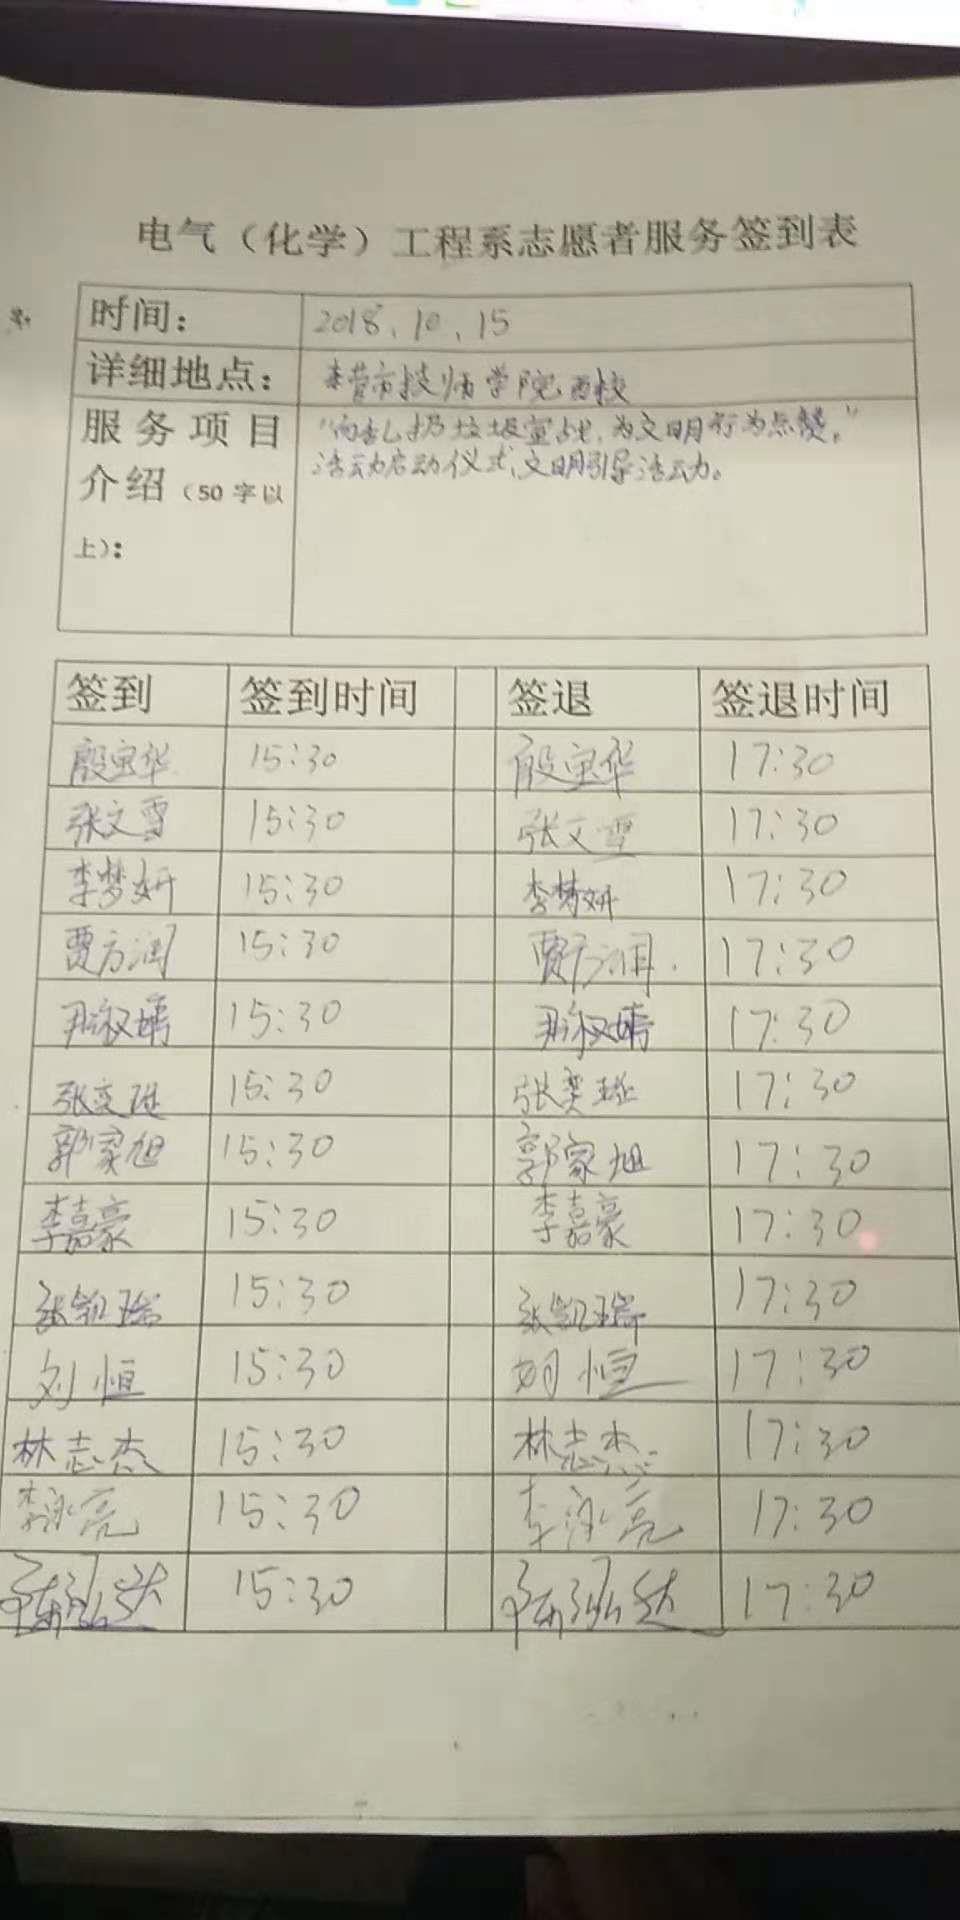 电气（化学）工程系志愿者服务签到表
时间： 2018.10.15
详细地点： 市技师学院西校
服务项目 "向乱扔垃圾宣战，为文明行为点赞。"
介绍（50字以 活动启动仪式，文明引导活动。
上）：
签到 签到时间 签退 签退时间
殷宝华 15:30 殷宝华 17:30
张文雪 15:30 张文雪 17:30
李梦妍 15:30 李梦妍 17:30
贾方润 15:30 贾方润 17:30
尹淑婧 15:30 尹淑婧 17:30
张奕琁 15:30 张奕琁 17:30
郭家旭 15:30 郭家旭 17:30
李嘉豪 15:30 李嘉豪 17:30
张凯瑞 15:30 张凯瑞 17:30
刘恒 15:30 刘恒 17:30
林志杰 15:30 林志杰 17:30
李泳亮 15:30 李泳亮 17:30
15:30 17:30